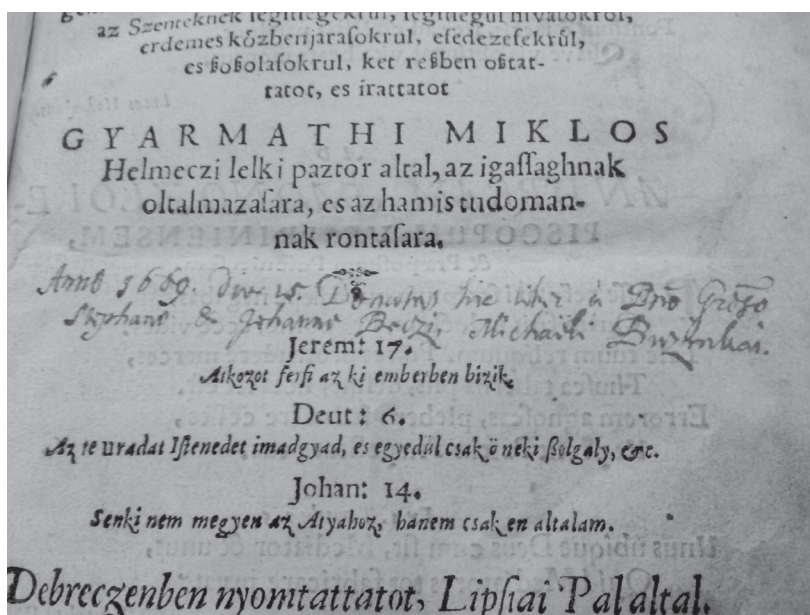 az Szenteknek segitsegekrul, segitsegul hivatokrol,
erdemes kőzbenjarasokrul, esedezesekrűl,
es ßoßolasokrul, ket reßben oßtat-
tatot, es irattatot
GYARMATHI MIKLOS
Helmeczi lelki paztor altal, az igaſſaghnak
oltalmazaſara, es az hamis tudoman-
nak rontaſara.
Anno 1669. die 15. Donatus hic liber à Dno Groſo
Stephano & Johanne Beczi, Michaeli Buzinkai.
Jerem: 17.
Atkozot ferfi az ki emberben bizik.
Deut: 6.
Az te uradat Iſtenedet imadgyad, es egyedul csak ő neki ßolgaly, &c.
Johan: 14.
Senki nem megyen az Atyahoz, hanem csak en altalam.
Debreczenben nyomtattatot, Lipſiai Pal altal.